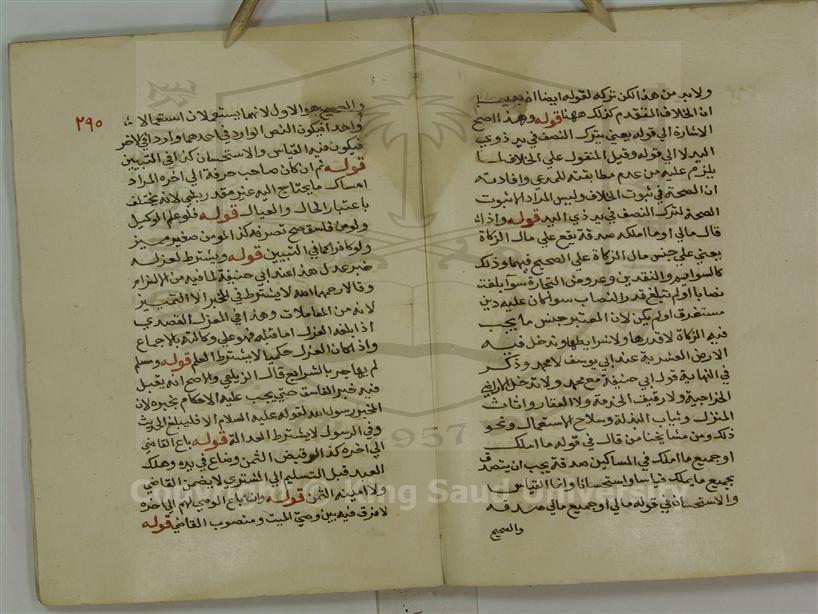 ولابد من هذا لكن تركه لقوله ايضا اذ يجب
ان الخلاف المتقدم كذلك ههنا قوله وهذا اصح
الاشارة الى قوله يعني يترك النصف في يد ذوي
اليد لا الى قوله وقيل المنقول على الخلاف لما
يلزم عليه من عدم مطابقته للمدعي وافادته
ان الصحة في ثبوت الخلاف وليس المراد الا ثبوت
الصحة لترك النصف في يد ذي اليد قوله واذا
قال مالي او ما املكه صدقة يقع على مال الزكاة
يعني على جنس مال الزكاة على الصحيح فيهما وذلك
كالسوايم والنقدين وعروض التجارة سوآ بلغت
نصابا او لم تبلغ قدر النصاب سوا كان عليه دين
مستغرق او لم يكن لان المعتبر جنس ما يجب
فيه الزكاة لا قدرها ولا شرايطها وتدخل فيه
الارض العشرية عند ابي يوسف لا محمد وذكر
في النهاية قول ابي حنيفة مع محمد ولا تدخل الاراضي
الخراجية ولا رقيق الخدمة ولا العقار واثاث
المنزل وثياب البذلة وسلاح الاستعمال ونحو
ذلك ومن مشايخنا من قال في قوله ما املك
او جميع ما املك في المساكين صدقة يجب ان يتصدق
بجميع ما يملك قياسا واستحسانا وانما القياس
والاستحسان في قوله مالي او جميع مالي صدقة
والصحيح
٢٩٠
والصحيح هو الاول لانهما يستعملان استعمالا
واحدا فيكون النص الوارد في احدهما واردا في الآخر
فيكون فيه القياس والاستحسان كذا في التبيين
قوله ثم ان كان صاحب حرفة الى اخره المراد
امساك ما يحتاج اليه غير مقدر زيلعي لانه يختلف
باعتبار الحال والعيال قوله فلو علم الوكيل
ولو من فاسق صح تصرفه كذا لو من صغير مميز
ولو كافرا كما في التبيين قوله ويشترط لعزله
خبر عدل هذا عند ابي حنيفة لما فيه من الالزام
وقالا رحمهما الله لا يشترط في المخبر الا التمييز
لانه من المعاملات وهذا في العزل القصدي
اذا بلغه العزل اما قبله فهو على وكالته بالاجماع
واذا كان العزل حكميا لا يشترط العلم قوله ومسلم
لم يهاجر بالشرايع قال الزيلعي والاصح انه يقبل
فيه خبر الفاسق حتى يجب عليه الاحكام بخبره لان
المخبر رسول الله لقوله عليه السلام الا فليبلغ الحديث
وفي الرسول لا يشترط العدالة قوله باع القاضي
الى اخره كذا لو قبض الثمن وضاع في يده وهلك
العبد قبل التسليم الى المشتري لا يضمن القاضي
ولا امينه الثمن قوله وان باع الوصي لهم الى اخره
لا فرق فيه بين وصي الميت ومنصوب القاضي قوله
Copyright © King Saud University
1957